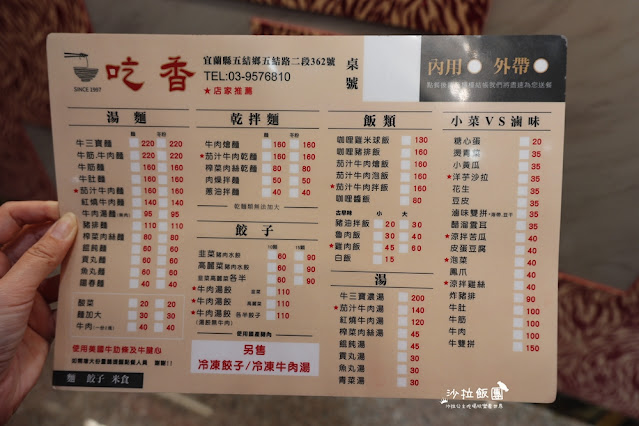 SINCE 1997
吃香
宜蘭縣五結鄉五結路二段362號
TEL:03-9576810
★店家推薦
桌號
內用 外帶
湯麵
牛三寶麵 220 220
牛筋.牛肉麵 220 220
牛筋麵 160 160
牛肚麵 160 160
★茄汁牛肉麵 160 160
紅燒牛肉麵 140 140
牛肉湯麵 95 95
豬排麵 90 90
榨菜肉絲麵 80 80
餛飩麵 60 60
貢丸麵 60 60
魚丸麵 60 60
陽春麵 40 40
酸菜 20 20
麵加大 30 30
牛肉 40 40
使用美國牛肋條及牛腱心
麵 餃子 米食
乾拌麵
牛肉燴麵 160 160
★茄汁牛肉乾麵 160 160
榨菜肉絲乾麵 80 80
肉燥拌麵 40 40
蔥油拌麵 40 40
乾麵類無法加大
餃子
10顆 15顆
韭菜豬肉水餃 60 90
高麗菜豬肉水餃 60 90
韭菜高麗菜各半 60 90
★牛肉湯餃 韭菜 110
★牛肉湯餃 高麗菜 110
★牛肉湯餃 各半餃子 110
使用國產豬肉
另售
冷凍餃子/冷凍牛肉湯
飯類
咖哩雞米球飯 130
咖哩豬排飯 100
咖哩牛肉飯 160
★茄汁牛肉燴飯 160
★茄汁牛肉泡飯 160
咖哩醬飯 80
古早味 小 大
豬油拌飯 20 30
魯肉飯 30 45
★雞肉飯 45 60
白飯 15
湯
牛三寶濃湯 200
★茄汁牛肉湯 140
紅燒牛肉湯 120
榨菜肉絲湯 45
餛飩湯 40
貢丸湯 30
魚丸湯 30
青菜湯 30
小菜VS滷味
糖心蛋 20
燙青菜 35
小黃瓜 35
★洋芋沙拉 35
花生 35
豆皮 35
滷味雙拼 35
醋溜雲耳 35
★涼拌苦瓜 40
皮蛋豆腐 40
★泡菜 40
鳳爪 40
★涼拌雞絲 40
炸豬排 90
牛肚 100
牛筋 100
牛肉 100
牛雙拼 150
沙拉飯團